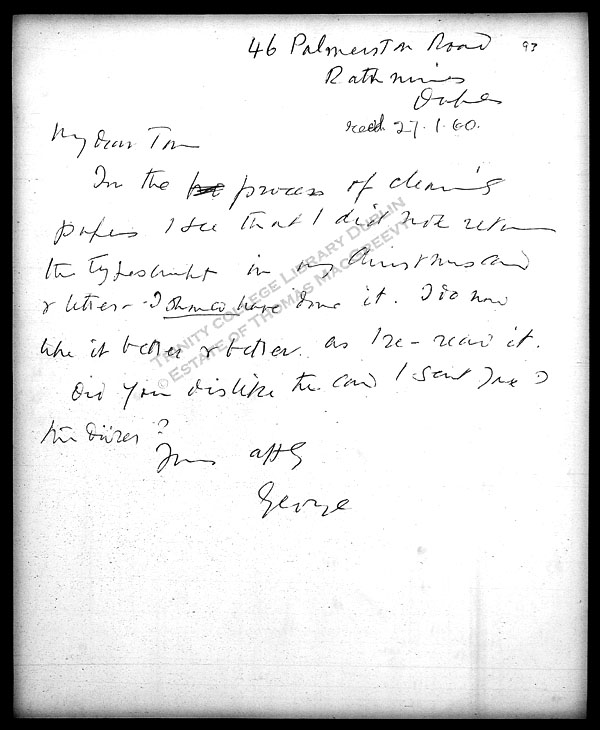 46 Palmerston Road 93
Rathmines
Dublin
recd. 27.1.60.
My dear Tom
In the process of clearing
papers I see that I did not return
the typescript in my Christmas card
& letter - I should have done it. I do now
like it better & better as I re-read it.
Did you dislike the card I sent you
the Dürer?
Yours affly
George
TRINITY COLLEGE LIBRARY DUBLIN
© ESTATE OF THOMAS MACGREEVY